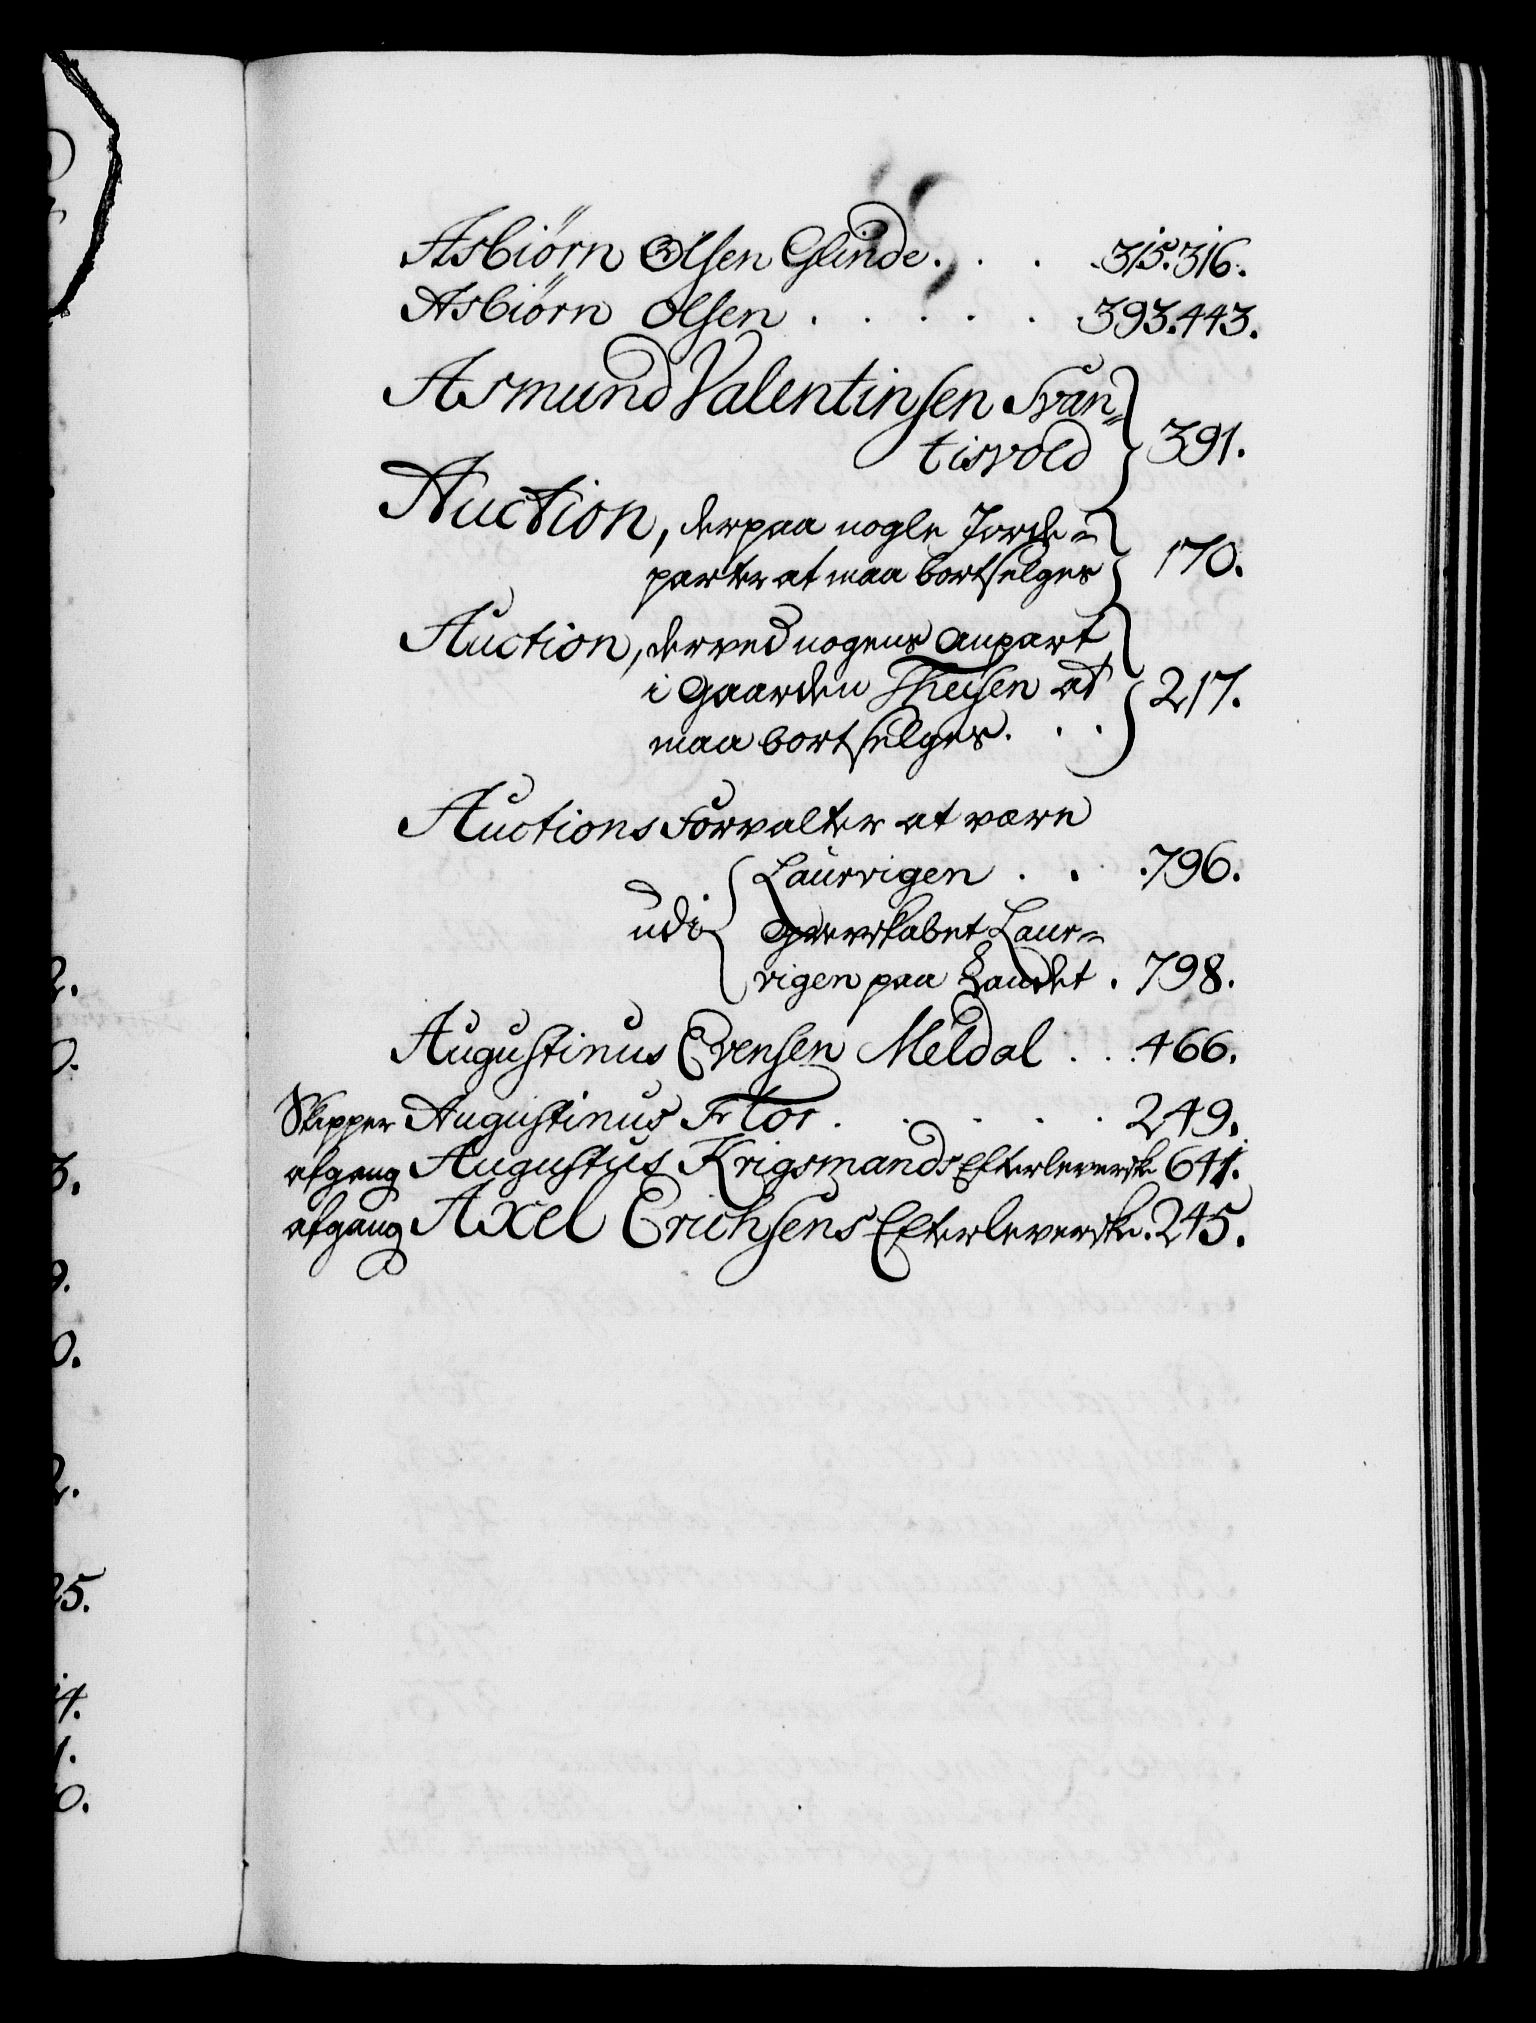 Asbiörn Olsen Glinde. . . 315. 316.
Asbiörn Olsen . . . . . 393. 443.
Asmund Valentinsen Svan=
tisvold 391.
Auction, derpaa nogle Jorde=
parter at maa bortselges 170.
Auction, derved nogens Anpart
i Gaarden Theisen at
maa bortselges. . . 217.
Auctions Forvalter at være
Laurvigen . . . 796.
udi
Grevskabet Laur=
vigen paa Landet . 798.
Augustinus Evensen Meldal . . . 466.
Skipper Augustinus Flor . . . . . 249.
afgang Augustus Krigsmands Efterleverske 641.
afgang Axel Erichsens Efterleverske. 245.
2.
0.
3.
9.
0.
2.
25.
4.
1.
0.